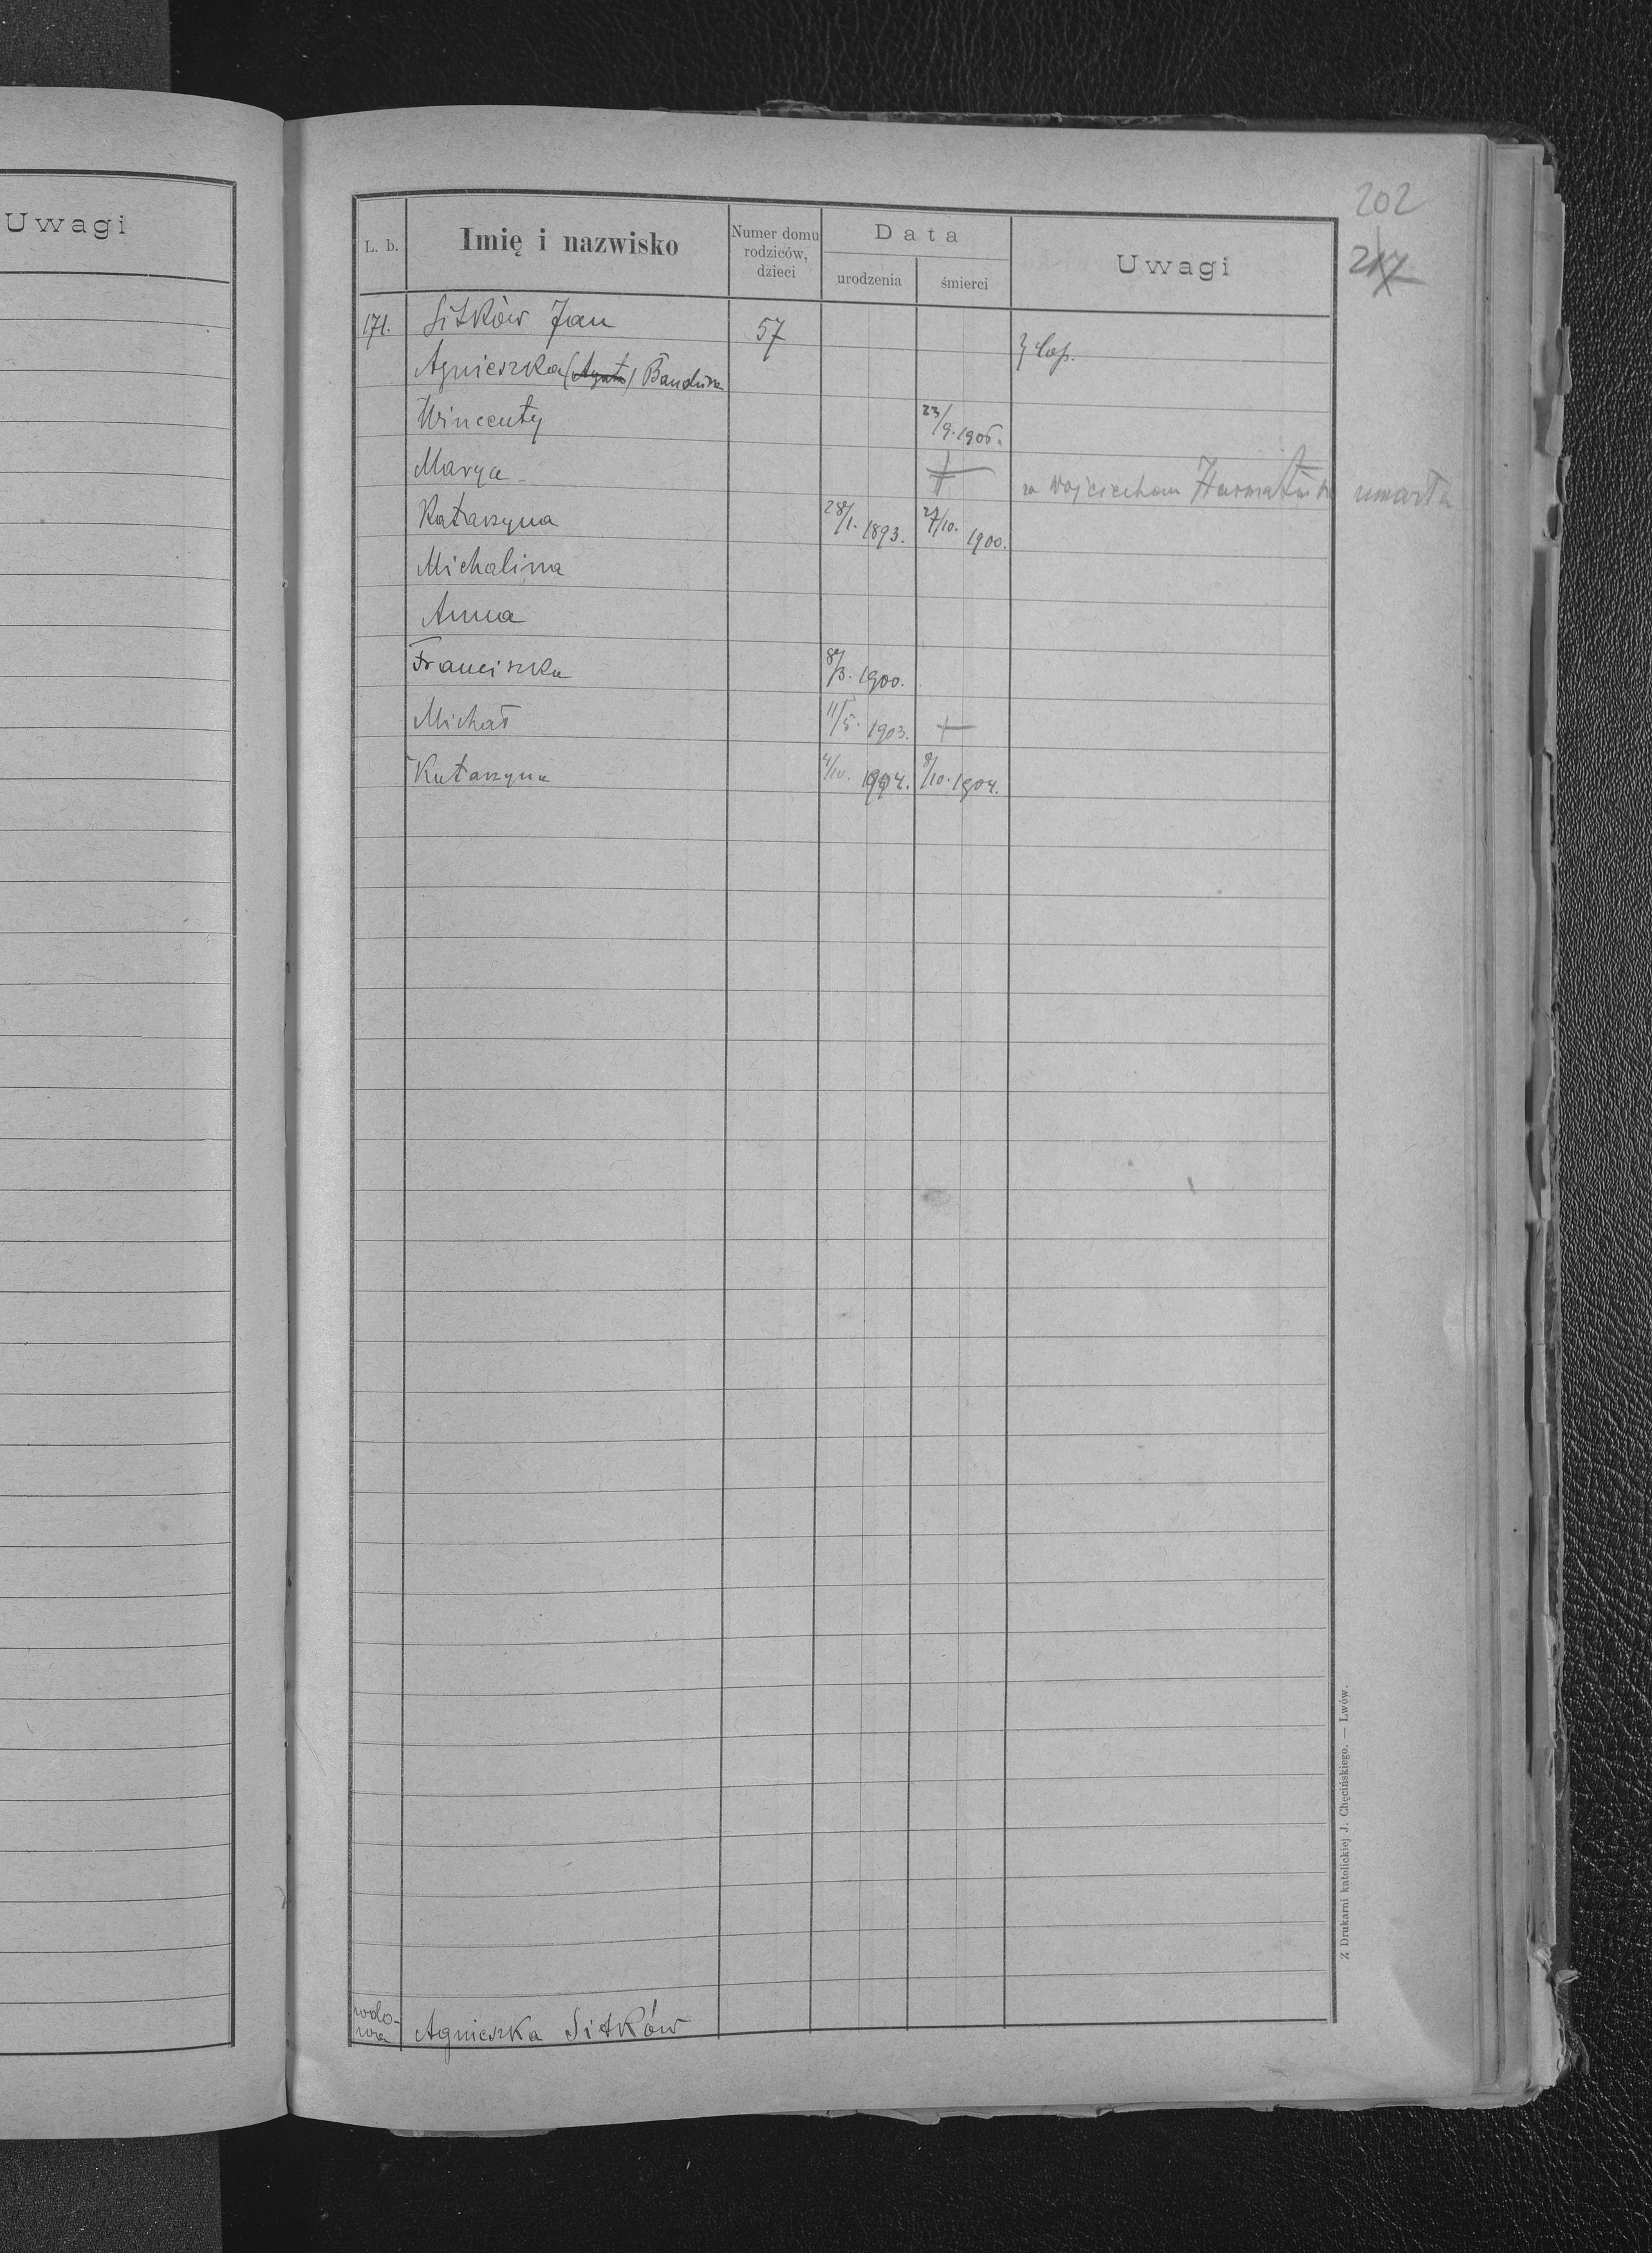 Uwagi
202
217
L. b.
Imię i nazwisko
Numer domu rodziców, dzieci
Data
urodzenia
śmierci
Uwagi
171. Sitków Jan 57
Agnieszka (Agata) Bandura } łap.
Wincenty 23/9. 1905.
Marya † za Wojciechem umarła
Katarzyna 28/1. 1893. 27/10. 1900.
Michalina
Anna
Franciszka 8/3. 1900.
Michał 11/5. 1903. +
Katarzyna 4/10. 1904. 8/10. 1904.
wdo-
wa Agnieszka Sitków
Z Drukarni katolickiej J. Chęcińskiego. — Lwów.